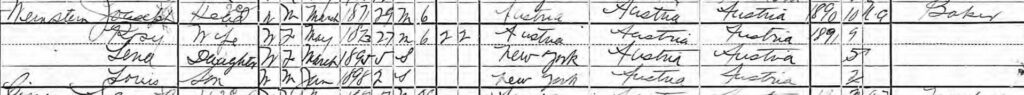 Weinstein Joseph Head W M March 1871 29 M 6 Austria Austria Austria 1890 10 Na Baker
Wife W F May 1873 27 M 6 2 2 Austria Austria Austria 1891 9
Lena Daughter W F March 1895 5 S New York Austria Austria 5
Louis Son W M Jan 1898 2 S New York Austria Austria 2